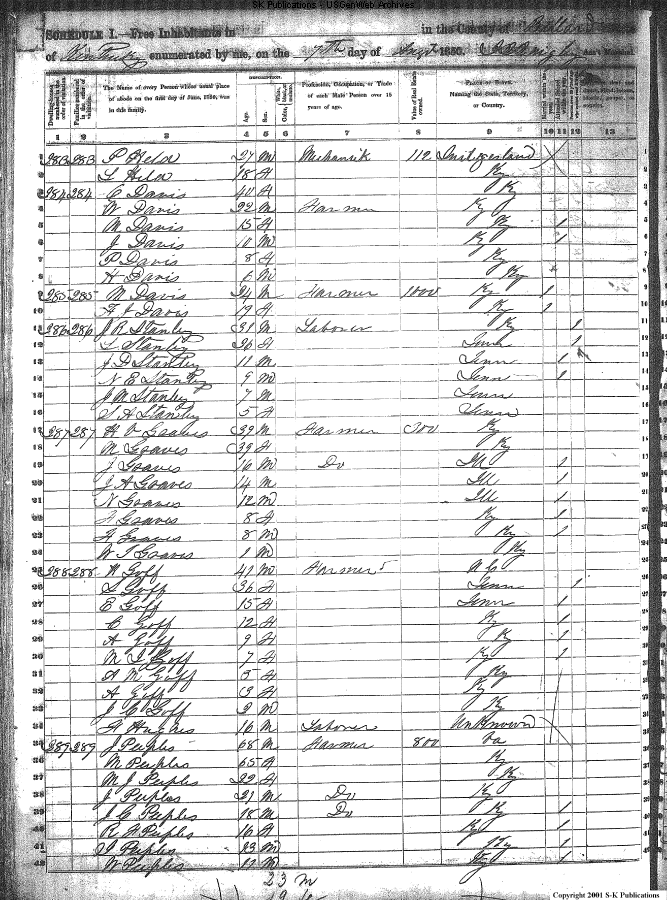 S-K Publications - USGenWeb Archives
SCHEDULE I.—Free Inhabitants in in the County of
of Kentucky enumerated by me, on the 7th day of Augt 1850.
DESCRIPTION.
Dwelling-houses numbered in the order of visitation.
Families numbered in the order of visitation.
The Name of every Person whose usual place of abode on the first day of June, 1850, was in this family.
Age
Sex.
Color
Profession, Occupation, or Trade of each Male Person over 15 years of age.
Value of Real Estate owned.
PLACE OF BIRTH. Naming the State, Territory, or Country.
1 2 3 4 5 6 7 8 9 10 11 12 13
1 283 283 P Held 27 M Mechanik 112 Switzerland
2 L Held 18 F Ky
3 284 284 C Davis 40 F Ky
4 W Davis 22 M Farmer Ky
5 M Davis 15 F Ky 1
6 J Davis 10 M Ky 1
7 P Davis 8 F Ky
8 H Davis 6 M Ky
9 285 285 M Davis 24 M Farmer 1000 Ky 1
10 Davis 19 F Ky 1
11 286 286 J R Stanley 31 M Laborer Ky 1
12 S Stanley 30 F Tenn 1
13 J D Stanley 11 M Tenn 1
14 N E Stanley 9 M Tenn 1
15 J M Stanley 7 M Tenn
16 S A Stanley 5 F Tenn
17 287 287 H V Goaves 39 M Farmer 300 Ky
18 M Goaves 39 F Ky
19 J Goaves 16 M Do Ill 1
20 J A Goaves 14 M Ill 1
21 N Goaves 12 M Ill 1
22 Goaves 8 F Ky 1
23 Goaves 8 M Ky 1
24 W T Goaves 1 M Ky
25 288 288 W Goff 41 M Farmer
26 S Goff 36 F Tenn 1
27 E Goff 15 F Tenn 1
28 C Goff 12 F Ky 1
29 A Goff 9 F Ky 1
30 M J Goff 7 F Ky 1
31 A M Goff 5 F Ky
32 A Goff 3 F Ky
33 J C Goff 2 M Ky
34 Hughes 16 M Laborer Unknown
35 289 289 J Peeples 68 M Farmer 800 Va
36 M Peeples 65 F Ky
37 M J Peeples 22 F Ky
38 J Peeples 21 M Do Ky
39 J C Peeples 18 M Do Ky 1
40 Peeples 16 F Ky 1
41 Peeples 13 M Ky 1
42 W Peeples 12 M Ky 1
23 M
19
Copyright 2001 S-K Publications